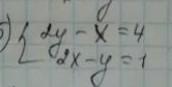 ) { 2y - x = 4
2x - y = 1